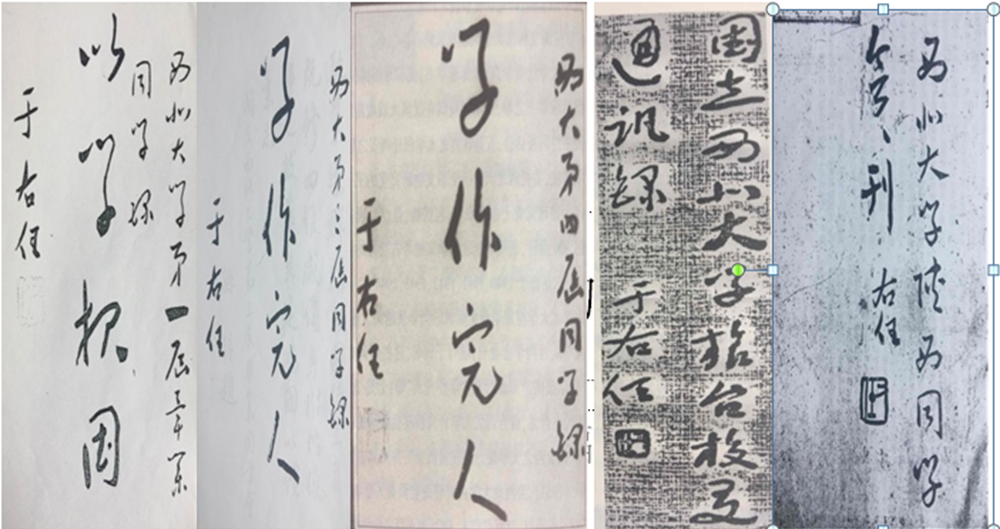 西北大学第一届畢業
同学録
以学报国
于右任
西大第二届同学録
学作完人
于右任
西大第四届同学録
学作完人
于右任
国立西北大学旅台校友
通訊録
于右任
西北大学陕西同学
会々刊
右任